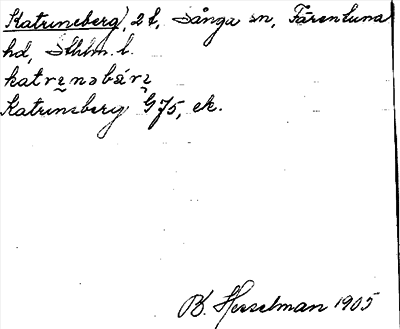 Katrineberg, 2 t, Sånga sn, Färentuna
hd, Sthlm. l.
Katrineberg G 75, ek.
B. Hesselman 1905